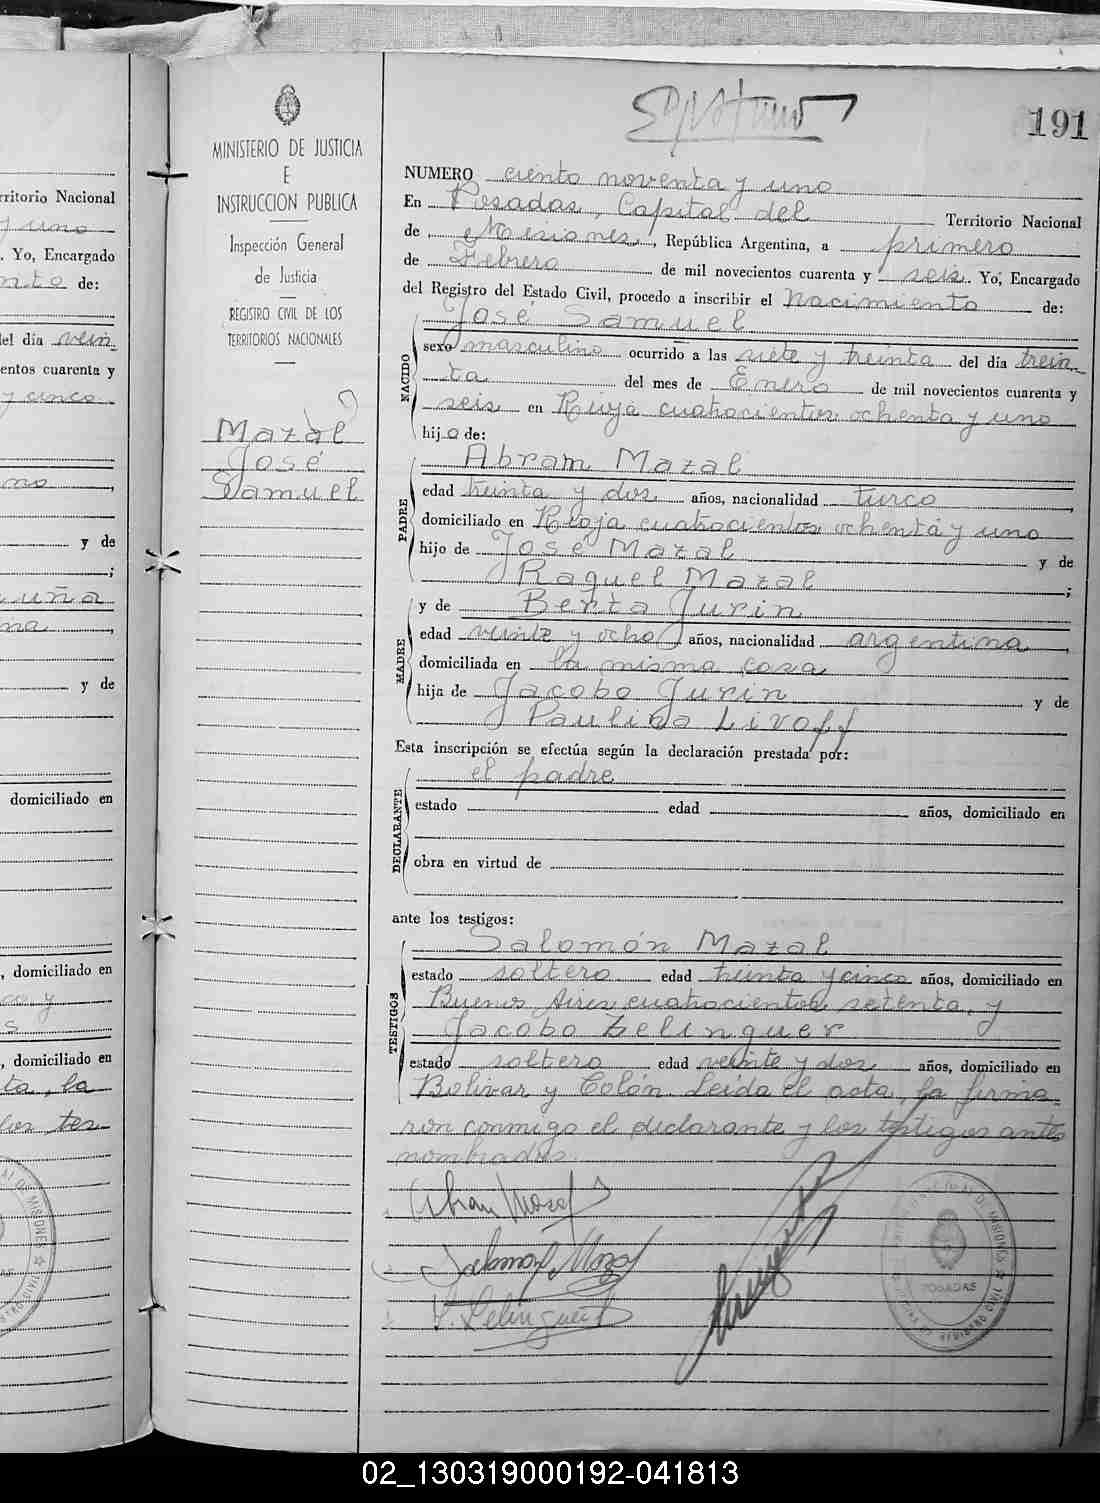 rritorio Nacional
y uno
. Yo, Encargado
nto de:
del día vein
entos cuarenta y
y cinco
no,
y de
;
uña
na,
y de
domiciliado en
, domiciliado en
y
s
, domiciliado en
ta, la
los tes
MINISTERIO DE JUSTICIA
E
INSTRUCCION PUBLICA
Inspección General
de Justicia
REGISTRO CIVIL DE LOS
TERRITORIOS NACIONALES
Mazal
José
Samuel
191
NUMERO ciento noventa y uno
En Posadas, Capital del Territorio Nacional
de Misiones, República Argentina, a primero
de Febrero de mil novecientos cuarenta y seis. Yo, Encargado
del Registro del Estado Civil, procedo a inscribir el Nacimiento de:
José Samuel
NACIDO
sexo masculino ocurrido a las siete y treinta del día trein
ta del mes de Enero de mil novecientos cuarenta y
seis en Rioja cuatrocientos ochenta y uno
hijo de:
Abram Mazal
PADRE
edad treinta y dos años, nacionalidad turco,
domiciliado en Rioja cuatrocientos ochenta y uno
hijo de José Mazal y de
Raquel Mazal;
y de Berta Jurin
MADRE
edad veinte y ocho años, nacionalidad argentina,
domiciliada en la misma casa
hija de Jacobo Jurin y de
Paulina Livoff
Esta inscripción se efectúa según la declaración prestada por:
el padre
DECLARANTE
estado edad años, domiciliado en
obra en virtud de
ante los testigos:
Salomón Mazal
TESTIGOS
estado soltero edad treinta y cinco años, domiciliado en
Buenos Aires cuatrocientos setenta, y
Jacobo Zelinguer
estado soltero edad veinte y dos años, domiciliado en
Bolívar y Colón. Leída el acta, la firma-
ron conmigo el declarante y los testigos antes
nombrados.
Salomon Mazal
POSADAS
02_130319000192-041813